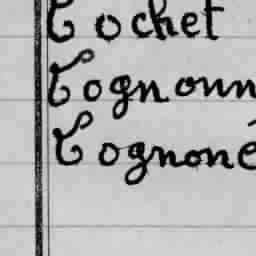 Cochet
Cognonn
Cognoné